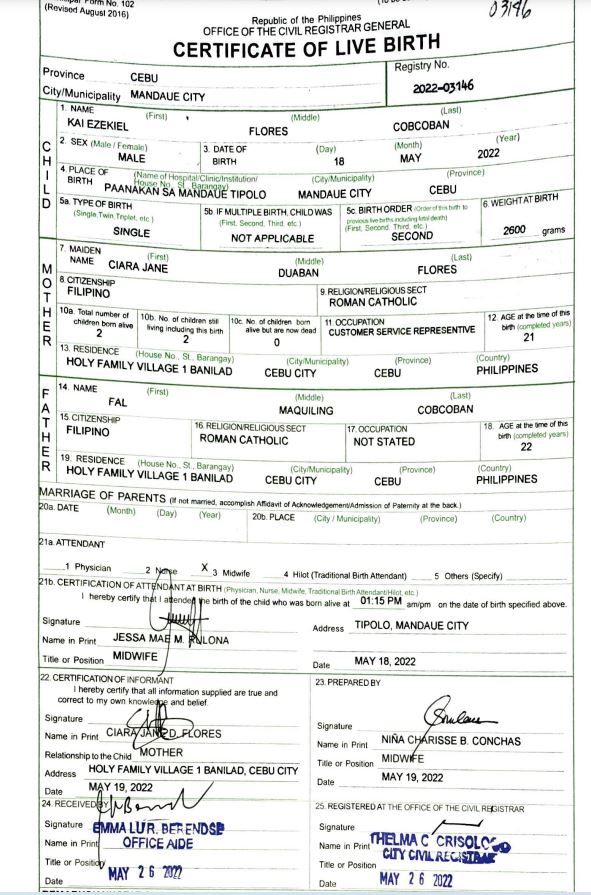 (Revised August 2016)
03146
Republic of the Philippines
OFFICE OF THE CIVIL REGISTRAR GENERAL
CERTIFICATE OF LIVE BIRTH
Province CEBU
City/Municipality MANDAUE CITY
Registry No.
2022-03146
CHILD
1. NAME (First) (Middle) (Last)
KAI EZEKIEL FLORES COBCOBAN
2. SEX (Male / Female) 3. DATE OF BIRTH (Day) (Month) (Year)
MALE 18 MAY 2022
4. PLACE OF BIRTH (Name of Hospital/Clinic/Institution/ House No., St., Barangay) (City/Municipality) (Province)
PAANAKAN SA MANDAUE TIPOLO MANDAUE CITY CEBU
5a. TYPE OF BIRTH (Single, Twin, Triplet, etc.)
SINGLE
5b. IF MULTIPLE BIRTH, CHILD WAS (First, Second, Third, etc.)
NOT APPLICABLE
5c. BIRTH ORDER (Order of this birth to previous live births including fetal death) (First, Second, Third, etc.)
SECOND
6. WEIGHT AT BIRTH
2600 grams
MOTHER
7. MAIDEN NAME (First) (Middle) (Last)
CIARA JANE DUABAN FLORES
8. CITIZENSHIP
FILIPINO
9. RELIGION/RELIGIOUS SECT
ROMAN CATHOLIC
10a. Total number of children born alive
2
10b. No. of children still living including this birth
2
10c. No. of children born alive but are now dead
0
11. OCCUPATION
CUSTOMER SERVICE REPRESENTIVE
12. AGE at the time of this birth (completed years)
21
13. RESIDENCE (House No., St., Barangay) (City/Municipality) (Province) (Country)
HOLY FAMILY VILLAGE 1 BANILAD CEBU CITY CEBU PHILIPPINES
FATHER
14. NAME (First) (Middle) (Last)
FAL MAQUILING COBCOBAN
15. CITIZENSHIP
FILIPINO
16. RELIGION/RELIGIOUS SECT
ROMAN CATHOLIC
17. OCCUPATION
NOT STATED
18. AGE at the time of this birth (completed years)
22
19. RESIDENCE (House No., St., Barangay) (City/Municipality) (Province) (Country)
HOLY FAMILY VILLAGE 1 BANILAD CEBU CITY CEBU PHILIPPINES
MARRIAGE OF PARENTS (If not married, accomplish Affidavit of Acknowledgement/Admission of Paternity at the back.)
20a. DATE (Month) (Day) (Year) 20b. PLACE (City / Municipality) (Province) (Country)
21a. ATTENDANT
1 Physician 2 Nurse X 3 Midwife 4 Hilot (Traditional Birth Attendant) 5 Others (Specify)
21b. CERTIFICATION OF ATTENDANT AT BIRTH (Physician, Nurse, Midwife, Traditional Birth Attendant/Hilot, etc.)
I hereby certify that I attended the birth of the child who was born alive at 01:15 PM am/pm on the date of birth specified above.
Signature
Name in Print JESSA MAE M. RULONA
Title or Position MIDWIFE
Address TIPOLO, MANDAUE CITY
Date MAY 18, 2022
22. CERTIFICATION OF INFORMANT
I hereby certify that all information supplied are true and
correct to my own knowledge and belief.
Signature
Name in Print CIARA JANE D. FLORES
Relationship to the Child MOTHER
Address HOLY FAMILY VILLAGE 1 BANILAD, CEBU CITY
Date MAY 19, 2022
23. PREPARED BY
Signature
Name in Print NIÑA CHARISSE B. CONCHAS
Title or Position MIDWIFE
Date MAY 19, 2022
24. RECEIVED BY
Signature EMMA LU R. BERENDSE
Name in Print OFFICE AIDE
Title or Position
Date MAY 26 2022
25. REGISTERED AT THE OFFICE OF THE CIVIL REGISTRAR
Signature
Name in Print THELMA C CRISOLOGO
CITY CIVIL REGISTRAR
Title or Position
Date MAY 26 2022